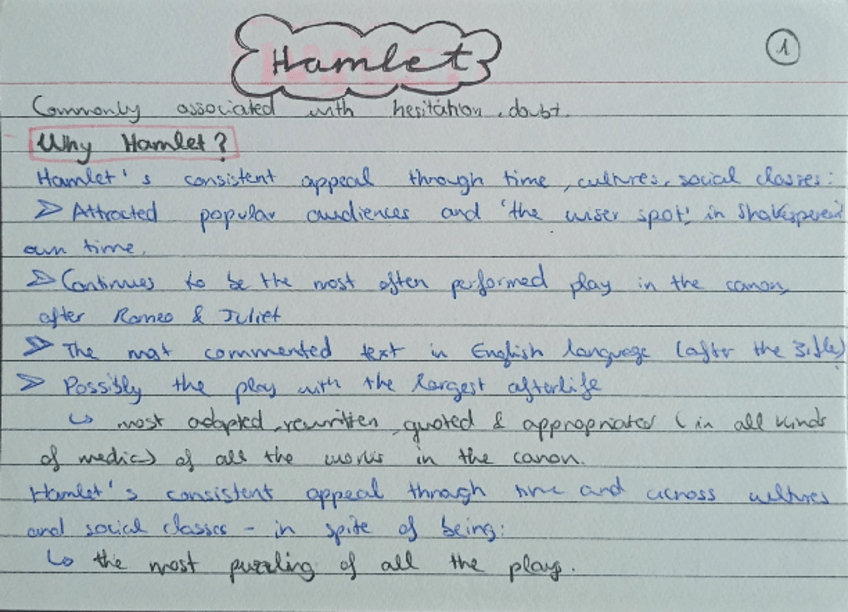 Hamlet
1
Commonly associated with hesitation, doubt.
Why Hamlet?
Hamlet's consistent appeal through time, cultures, social classes:
> Attracted popular audiences and 'the wiser sport' in
own time.
> Continues to be the most often performed play in the canon,
after Romeo & Juliet
> The most commented text in English language (after the Bible)
> Possibly the play with the largest afterlife
↳ most adapted, rewritten, quoted & appropriated (in all kinds
of media) of all the works in the canon.
Hamlet's consistent appeal through time and across cultures
and social classes - in spite of being:
↳ the most puzzling of all the plays.